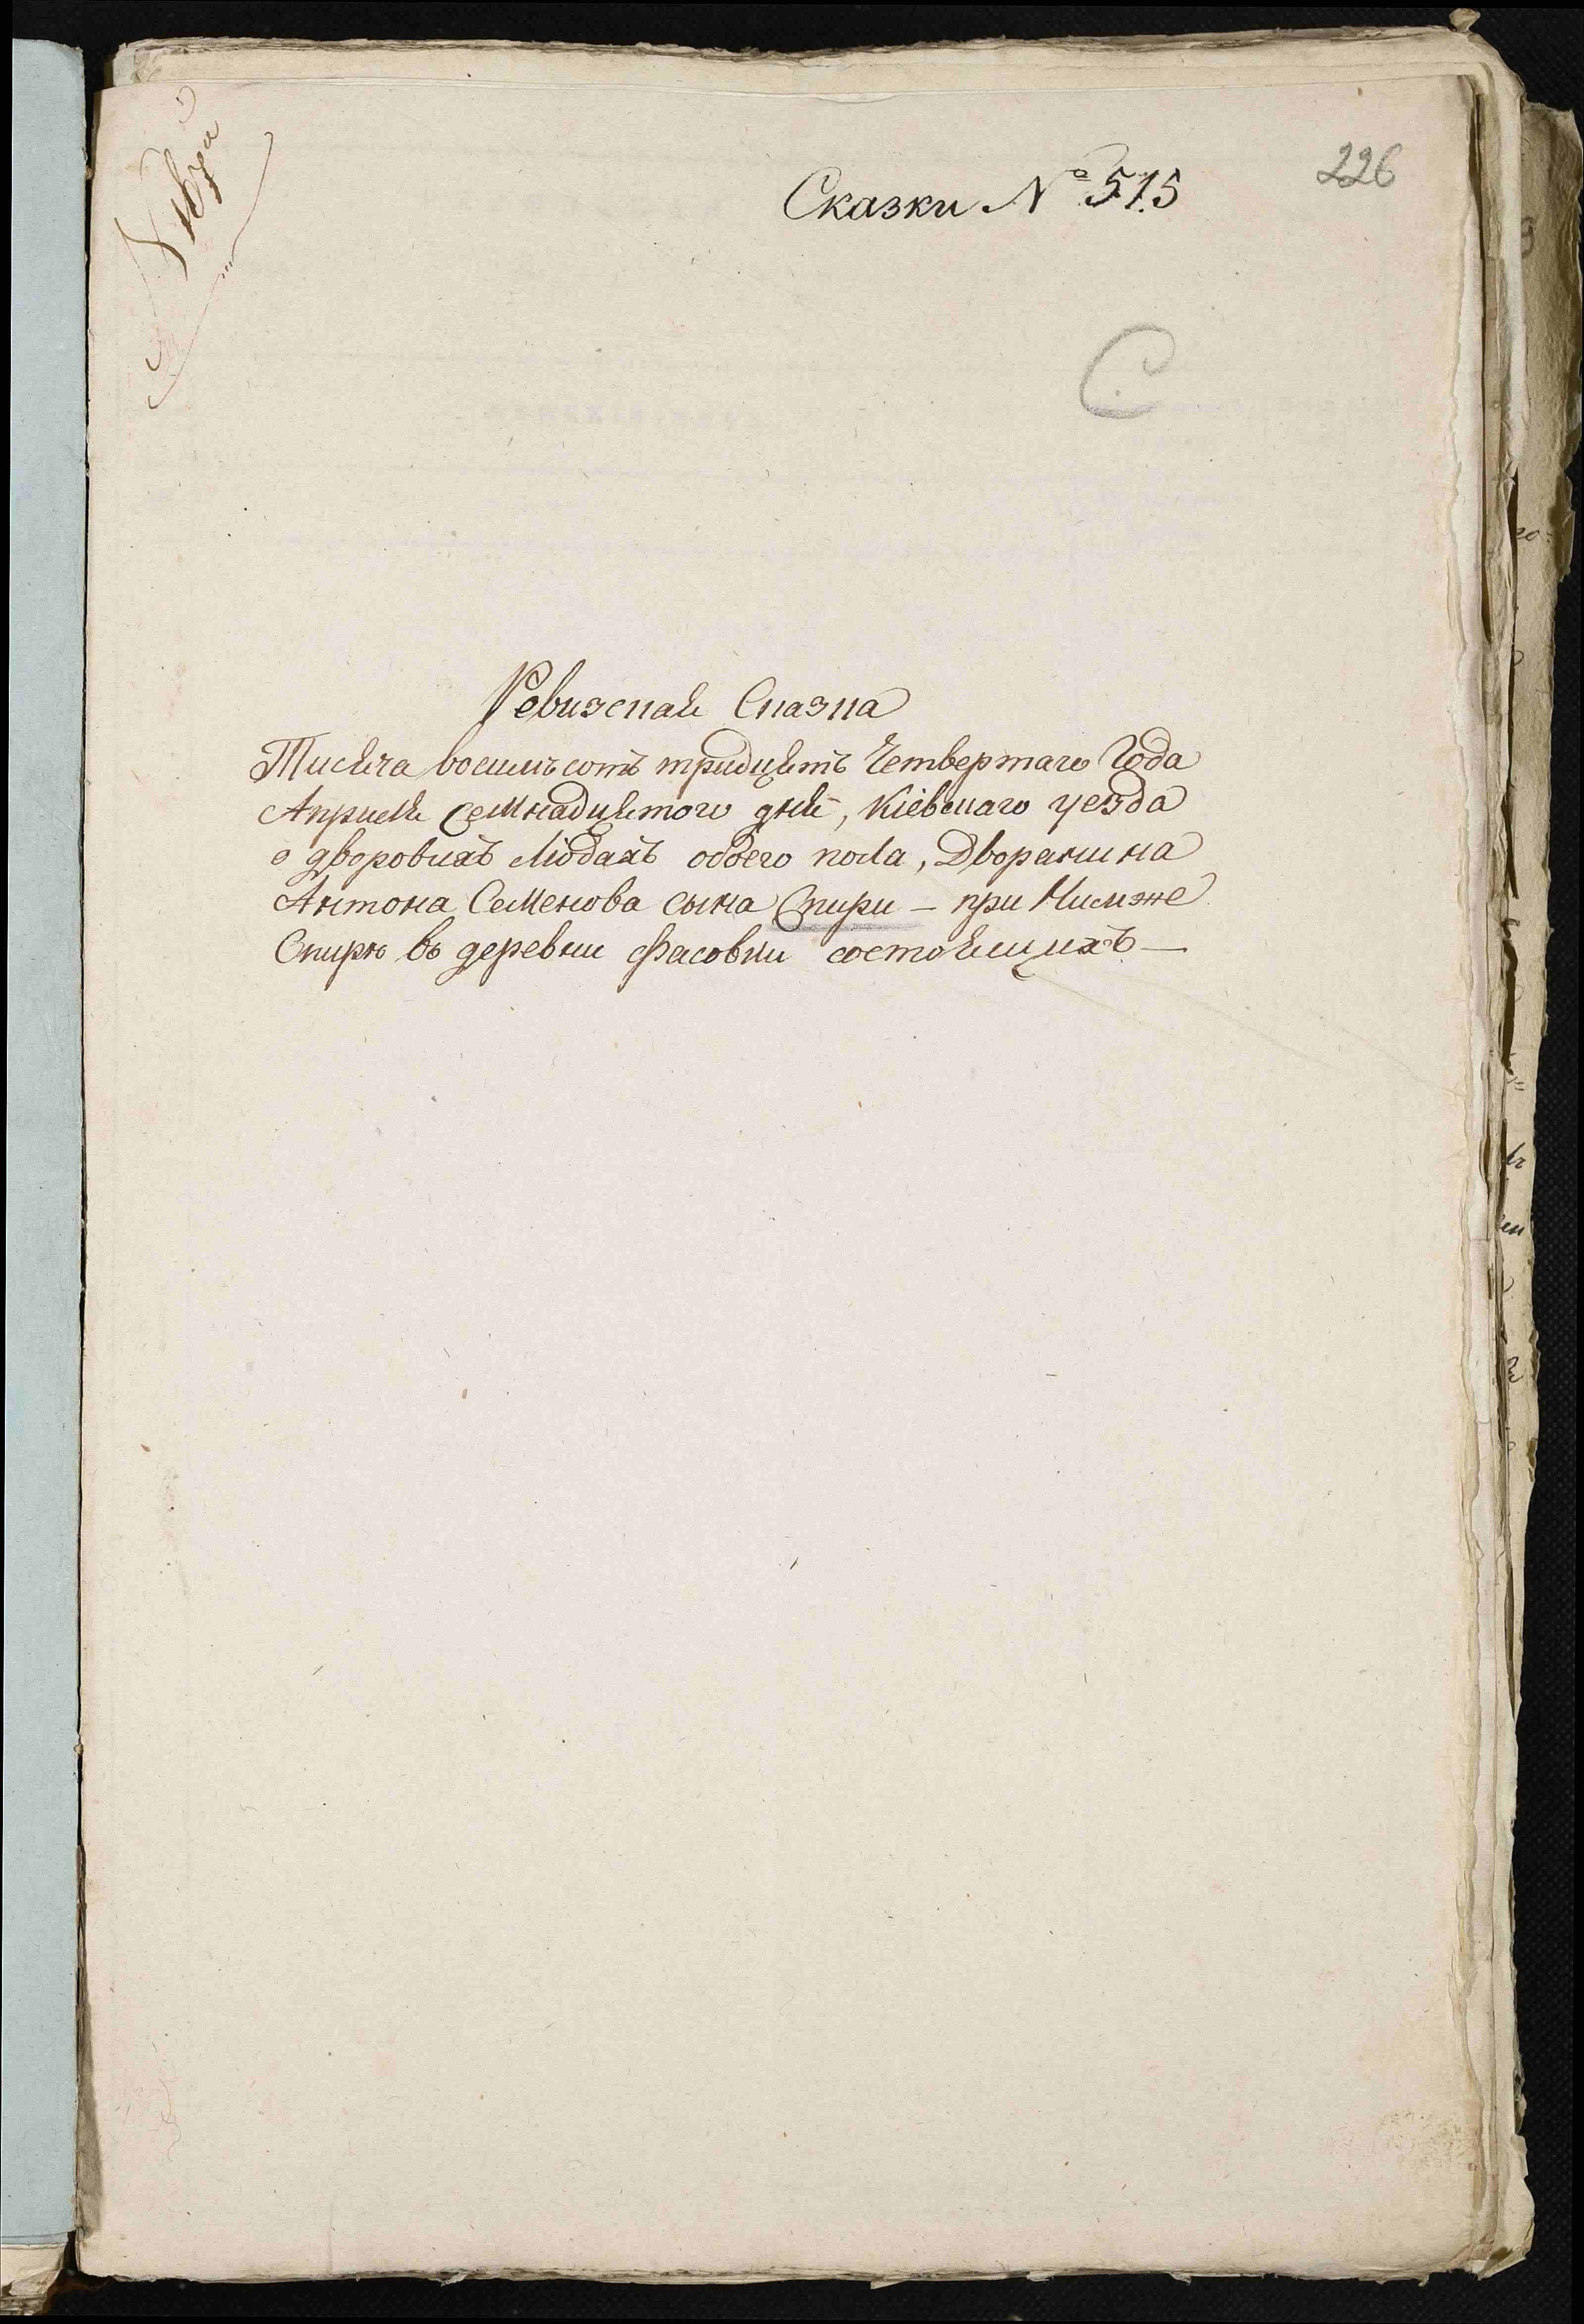 226
Сказки № 515
С
Ревизская Сказка
Тисяча восимъ сотъ тридцять Четвертаго Года
Априля семнадцятого дня, Кіевскаго уезда
о дворовихъ людахъ обоего пола, Дворанина
Антона Семенова сына Спири - при Нимже
Спирю въ деревни Фасовки состоящихъ -